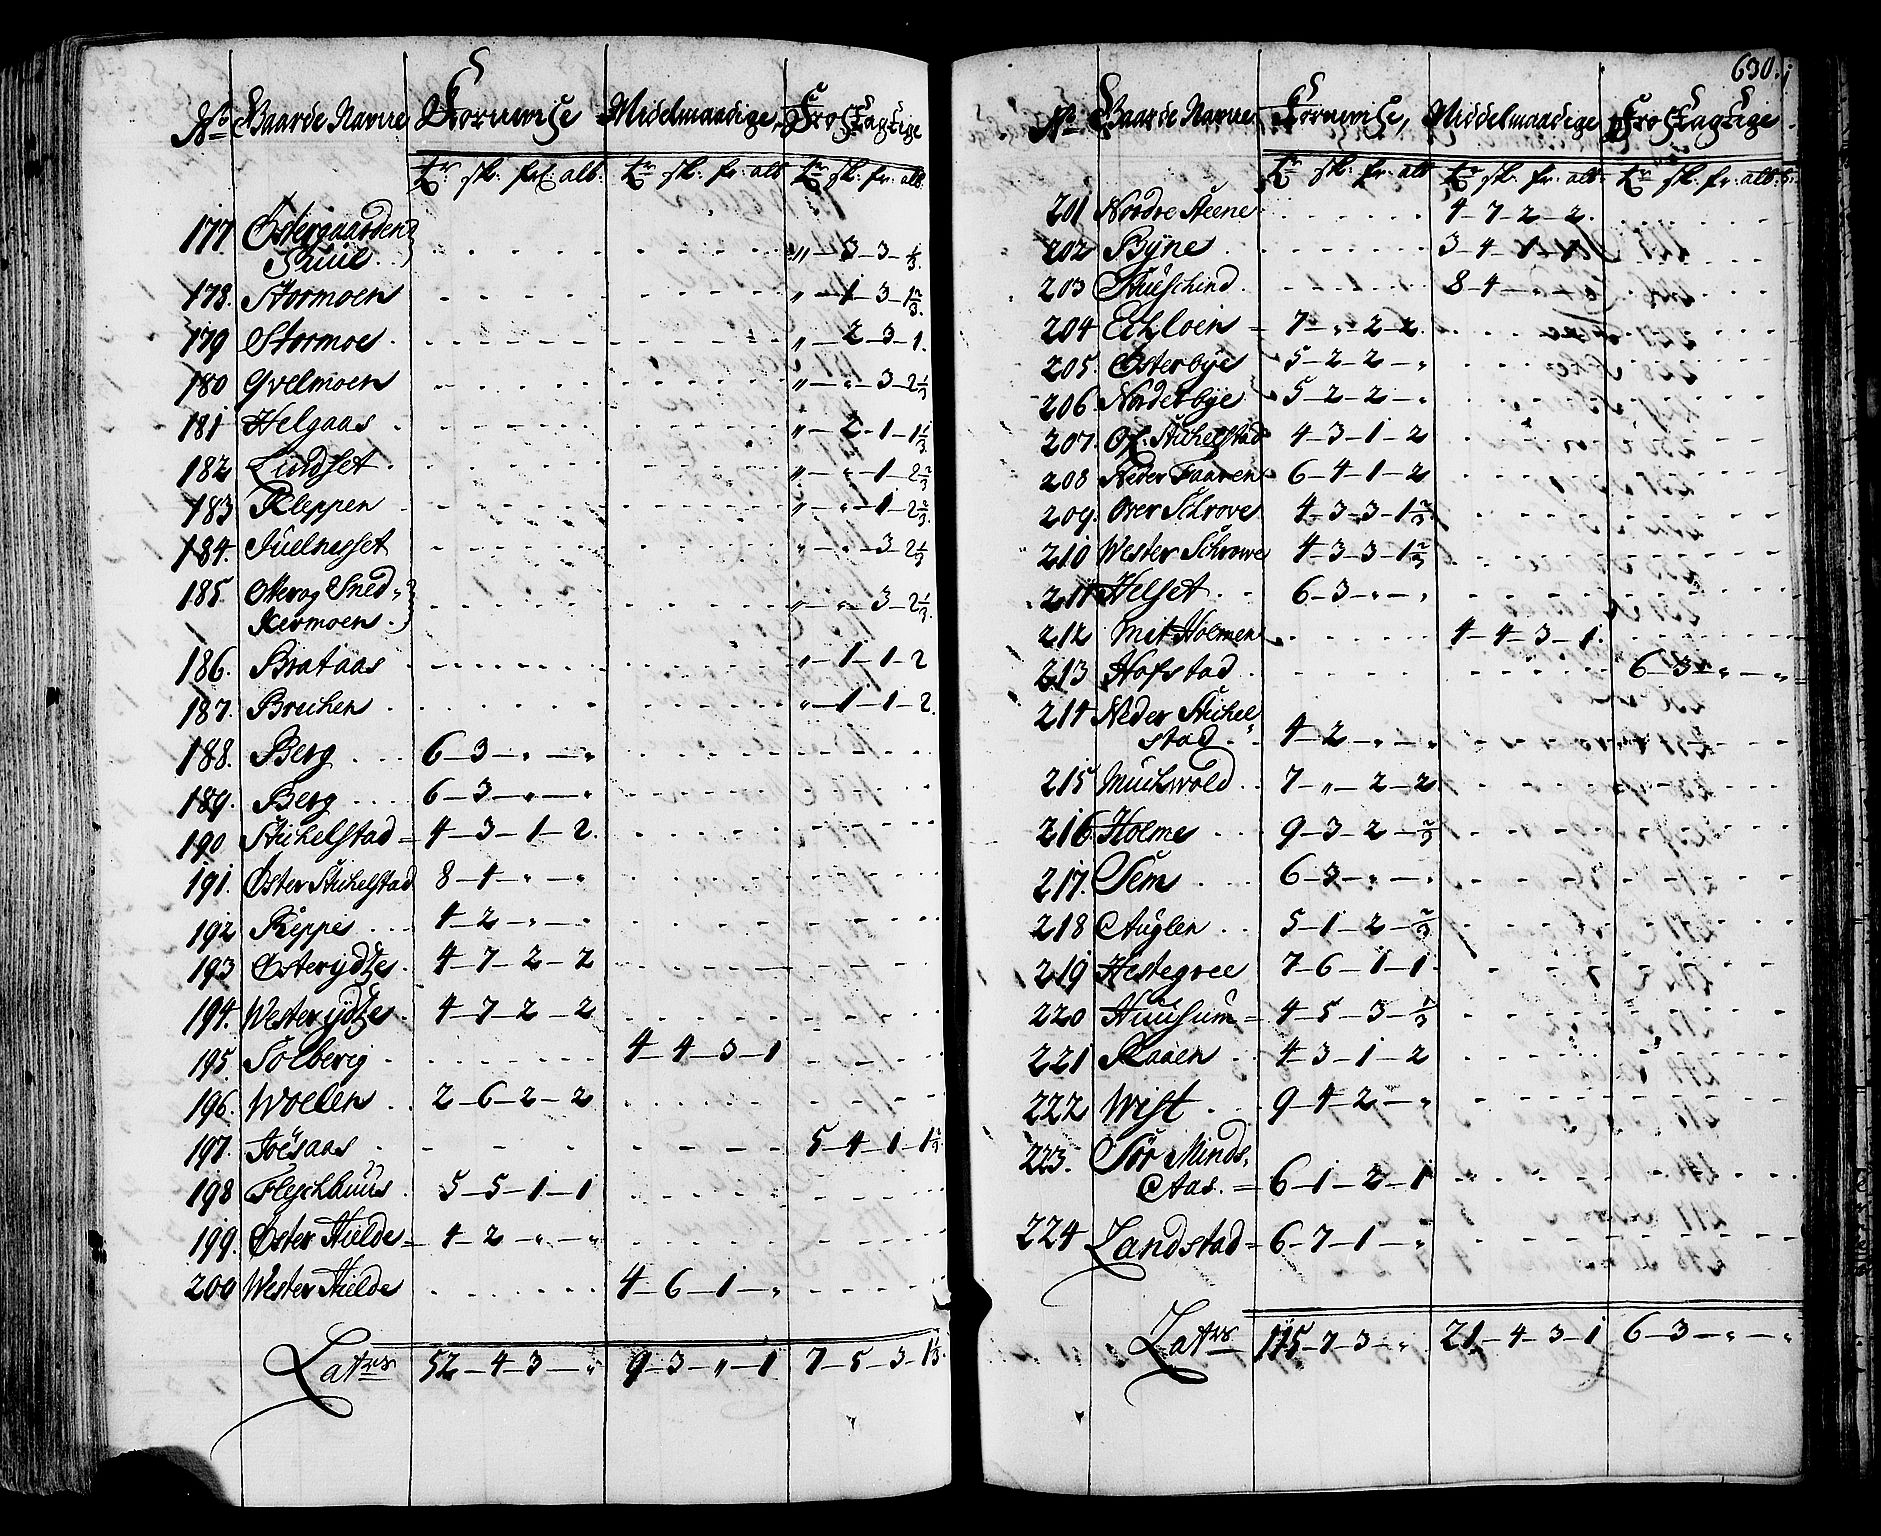 No Gaarde Navne Kornviſse Middelmaadige, Froſtagtige
tr sk. frl: alb. tr sk. fr: alb tr sk. fr: alb
177 Østergaarden
Suul . . . . . . . „ — 3 — 3 — 1/3.
178. Stormoen „ — 1 — 3 — 1 2/3.
179 Stormoe „ — 2 — 3 — 1.
180 Qvelmoen „ — „ — 3 — 2 1/3
181 Helgaas „ — 2 — 1 — 1 1/3
182 Lundset „ — „ — 1 — 2 2/3
183 Kleppen „ — „ — 1 — 2 2/3
184. Juelnesset „ — „ — 3 — 2 1/3
185. Otter og Sned„
Kermoen „ — „ — 3 — 2 1/3
186. Brataas „ — 1 — 1 — 2
187. Brechen „ — 1 — 1 — 2.
188. Berg 6 — 3 — „ — „
189. Berg 6 — 3 — „ — „
190 Stichelstad 4 — 3 — 1 — 2.
191. Øster Stichelstad 8 — 4 — „ — „
192 Reppe 4 — 2 — „ — „
193 Østerydtze 4 — 7 — 2 — 2
194. Westerydtze 4 — 7 — 2 — 2
195 Solberig 4 — 4 — 3 — 1
196. Woelen 2 — 6 — 2 — 2
197. Joësaas 5 — 4 — 1 — 1 2/3
198 Fleschhuus 5 — 5 — 1 — 1
199. Øster Hielde 4 — 2 — „ — „
200 Wester Hielde 4 — 6 — 1 — „
Latus 52 — 4 — 3 — „ 9 — 3 — „ — 1 7 — 5 — 3 — 1 1/3.
630.
No Gaarde Navne Kornviſse, Middelmaadige Froſtagtige
tr sk. fr: alb tr sk. fr: alb tr sk. fr: alb:
201 Nordre Steene 4 — 7 — 2 — 2.
202 Byne 3 — 4 — 1 — 1
203 Skieschind 8 — 4 — „ — „
204 Echloen 7 — „ — 2 — 2.
205. Østerbye 5 — 2 — 2 — „
206. Norderbye 5 — 2 — 2 — „
207. Of: Stichelstad 4 — 3 — 1 — 2
208 Neder Faaren 6 — 4 — 1 — 2
209. Over Schrove 4 — 3 — 3 — 1 2/3.
210 Wester Schrowe 4 — 3 — 3 — 1 2/3
211 Helset 6 — 3 — „ — „
212 Mit Holmen 4 — 4 — 3 — 1.
213 Hofstad 6 — 3 — „ — „
214 Neder Stichel„
stad 4 — 2 — „ — „
215 Muchwold 7 — „ — 2 — 2
216 Holme 9 — 3 — 2 — 2/3
217. Sem 6 — 3 — „ — „
218 Auglen 5 — 1 — 2 — 2/3
219 Hestegree 7 — 6 — 1 — 1.
220 Huusum 4 — 5 — 3 — 1/3
221 Raaen 4 — 3 — 1 — 2
222 Wist 9 — 4 — 2 — „
223. Sør Minds„
Aas. 6 — 1 — 2 — 1
224 Landstad 6 — 7 — 1 — „
Latus 115 — 7 — 3 — „ 21 — 4 — 3 — 1 6 — 3 — „ — „